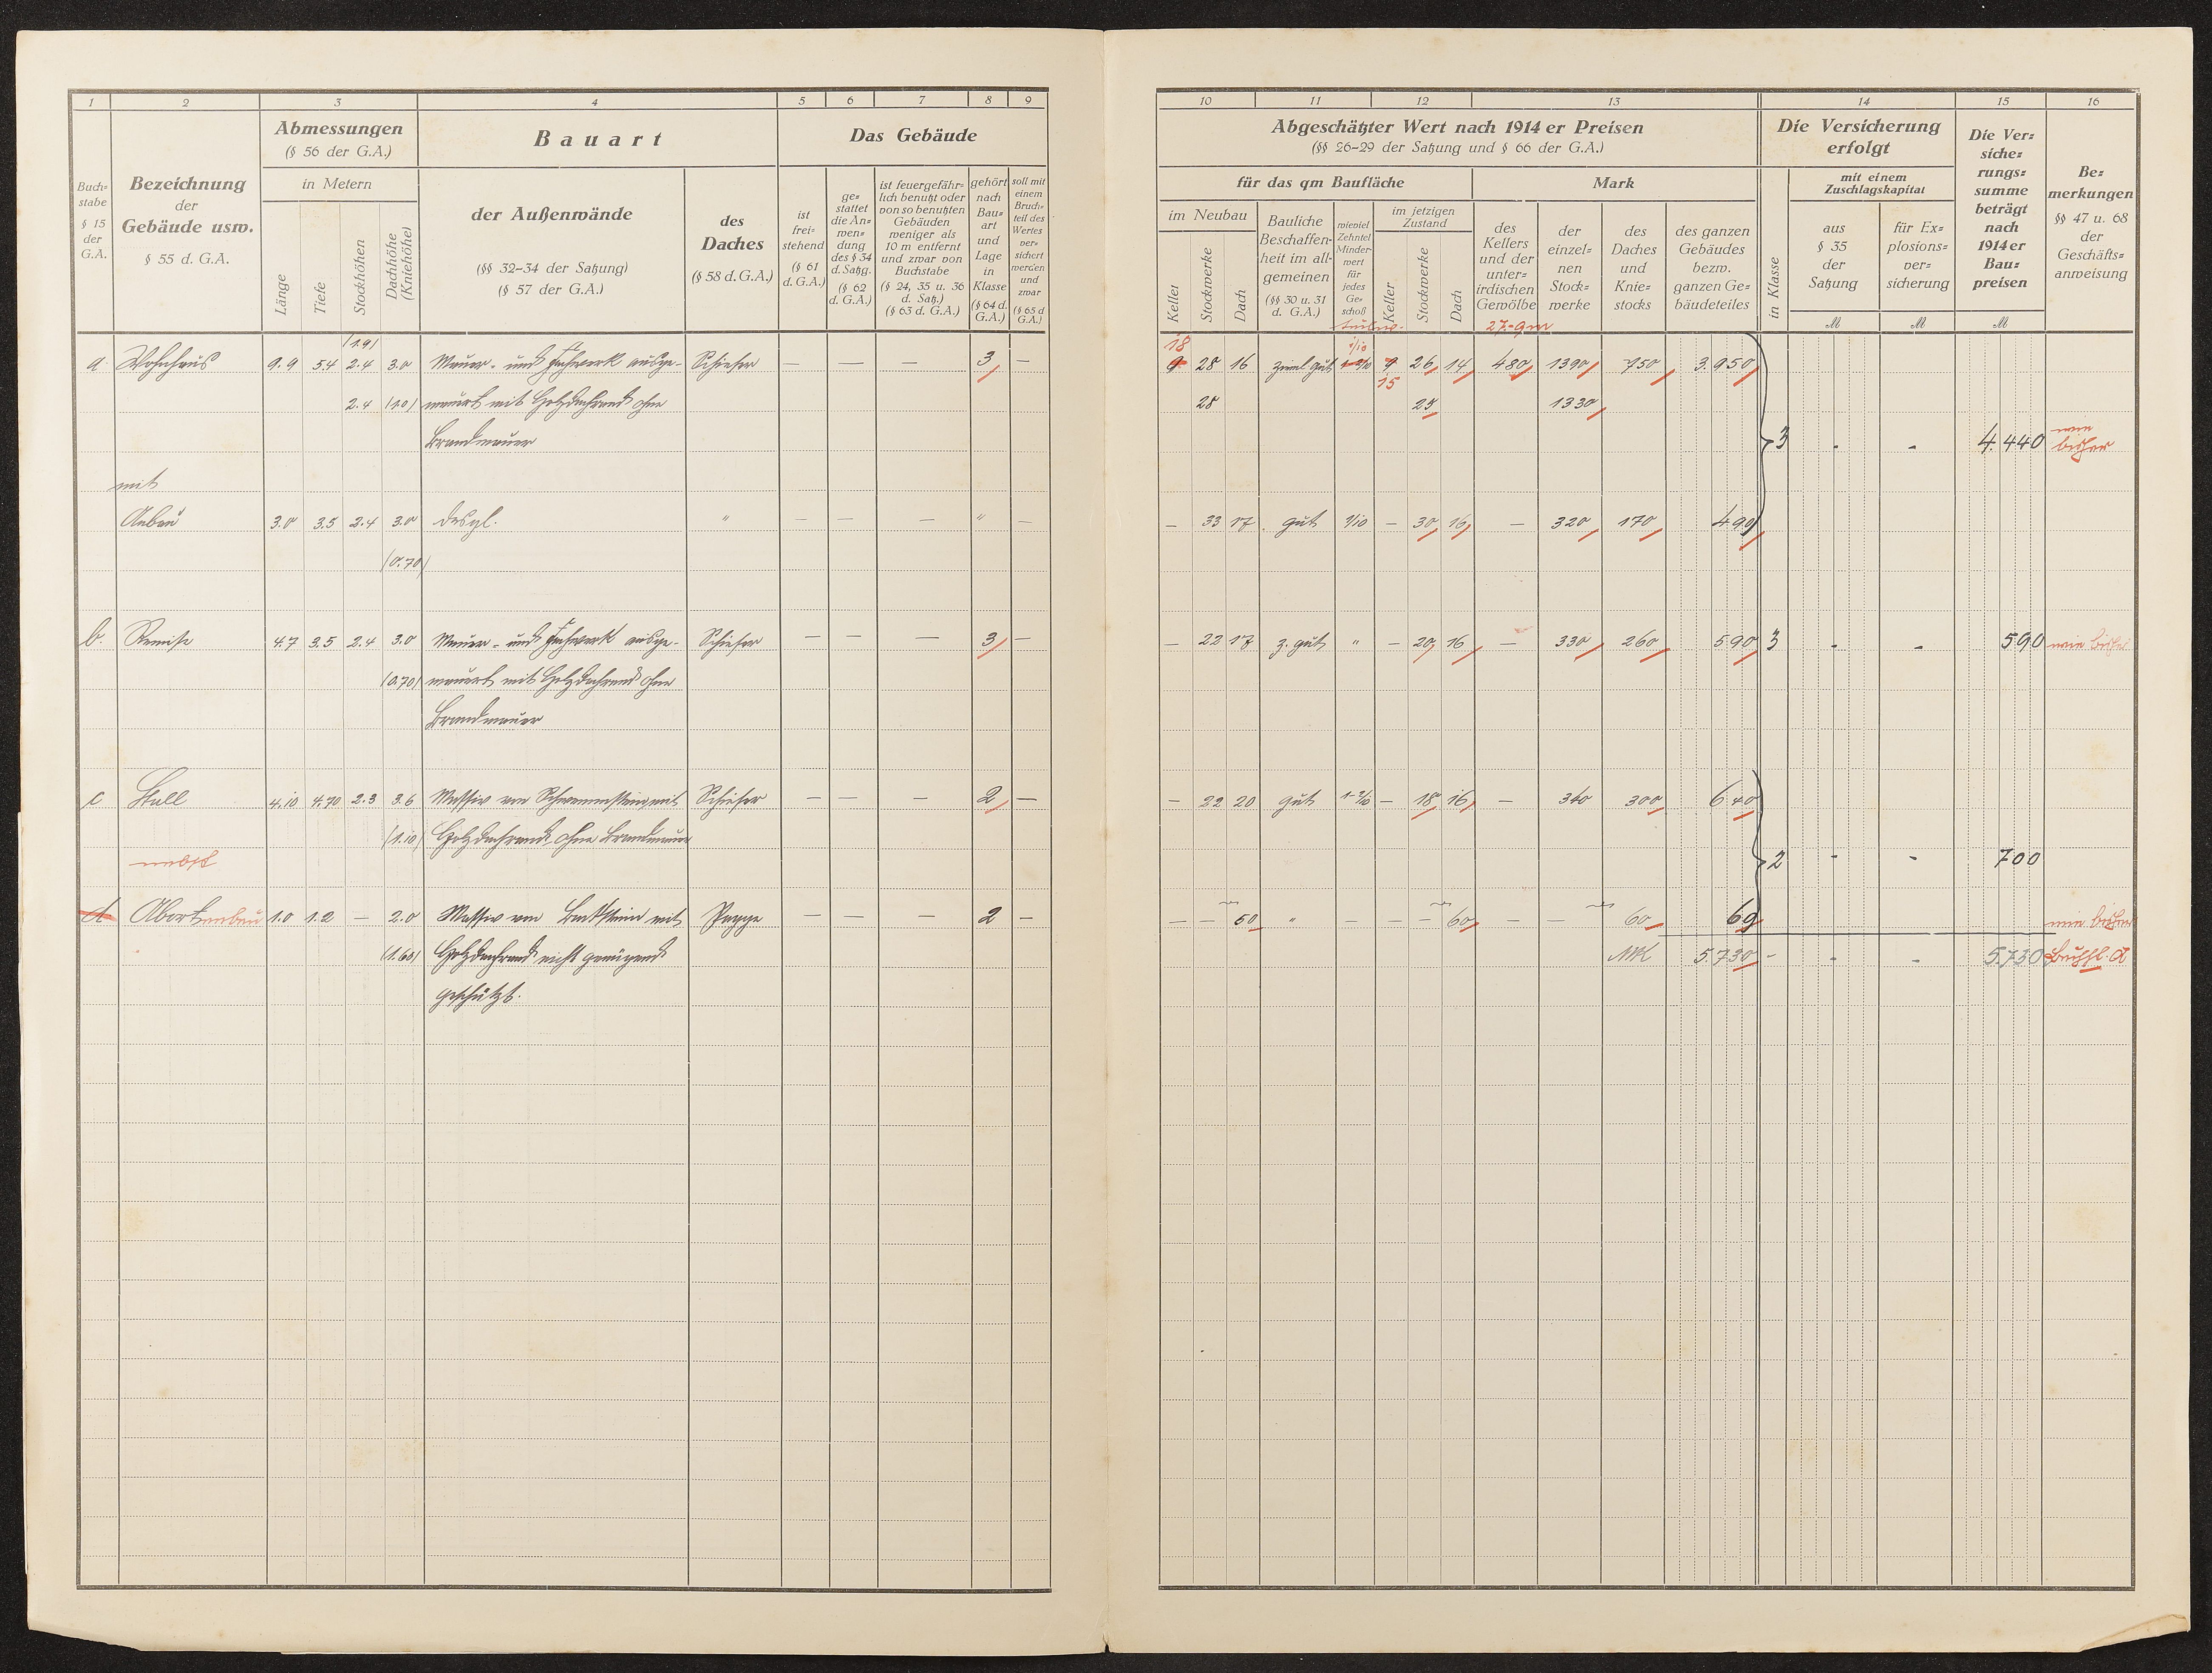 1 2 3 4 5 6 7 8 9
Abmessungen
(§ 56 der G.A.)
Bauart
Das Gebäude
Buch=
stabe
§ 15
der
G.A.
Bezeichnung
der
Gebäude usw.
§ 55 d. G.A.
in Metern
Länge
Tiefe
Stockhöhen
Dachhöhe
(Kniehöhe)
der Außenwände
(§§ 32-34 der Satzung)
(§ 57 der G.A.)
des
Daches
(§ 58 d. G.A.)
ist
frei=
stehend
(§ 61
d. G.A.)
ge=
stattet
die An=
wen=
dung
des § 34
d. Satzg.
(§ 62
d. G.A.)
ist feuergefähr=
lich benutzt oder
von so benutzten
Gebäuden
weniger als
10 m entfernt
und zwar von
Buchstabe
(§ 24, 35 u. 36
d. Satz.)
(§ 63 d. G.A.)
gehört
nach
Bau=
art
und
Lage
in
Klasse
(§ 64 d.
G.A.)
soll mit
einem
Bruch=
teil des
Wertes
ver=
sichert
werden
und
zwar
(§ 65 d
G.A.)
(1.9)
a Wohnhaus 9.9 5.4 2.4 3.0 Mauer- und Fachwerk ausge- Schiefer — — — 3 —
2.4 (1.0) mauert mit Holzdachrand ohne
Brandmauer
mit
Anbau 3.0 3.5 2.4 3.0 desgl. " — — — " —
(0.70)
b. Remise 4.7 3.5 2.4 3.0 Mauer- und Fachwerk ausge- Schiefer — — — 3 —
(0.70) mauert mit Holzdachrand ohne
Brandmauer
c Stall 4.10 4.70 2.3 3.6 Massiv von Schwemmstein mit Schiefer — — — 2 —
(1.10) Holzdachrand ohne Brandmauer
nebst
d Abortanbau 1.0 1.2 — 2.0 Massiv von Backstein mit Pappe — — — 2 —
(1.60) Holzdachrand nicht genügend
geschützt.
10 11 12 13 14 15 16
Abgeschätzter Wert nach 1914 er Preisen
(§§ 26-29 der Satzung und § 66 der G.A.)
Die Versicherung
erfolgt
Die Ver=
siche=
rungs=
summe
beträgt
nach
1914 er
Bau=
preisen
Be=
merkungen
§§ 47 u. 68
der
Geschäfts=
anweisung
für das qm Baufläche
Mark
im Neubau
Keller
Stockwerke
Dach
Bauliche
Beschaffen=
heit im all=
gemeinen
(§§ 30 u. 31
d. G.A.)
wieviel
Zehntel
Minder=
wert
für
jedes
Ge=
schoß
im jetzigen
Zustand
Keller
Stockwerke
Dach
des
Kellers
und der
unter=
irdischen
Gewölbe
der
einzel=
nen
Stock=
werke
des
Daches
und
Knie=
stocks
des ganzen
Gebäudes
bezw.
ganzen Ge=
bäudeteiles
in Klasse
mit einem
Zuschlagskapital
aus
§ 35
der
Satzung
für Ex=
plosions=
ver=
sicherung
M M M
27 qm
18 1/10
9 28 16 zieml. gut 1-2/10 9 26 14 480 1390 750 3.950
15
28 25 1330
3 - - 4.440 wie bisher
— 33 17 gut 1/10 — 30 16 — 320 170 490
— 22 17 z. gut " — 20 16 — 330 260 590 3 - - 590 wie bisher
— 22 20 gut 1-2/10 — 18 16 — 340 300 640
2 - - 700
— — 50 " — — — 60 — — 60 60 wie bisher
MK 5.730 - - - 5.730 Buchst. d